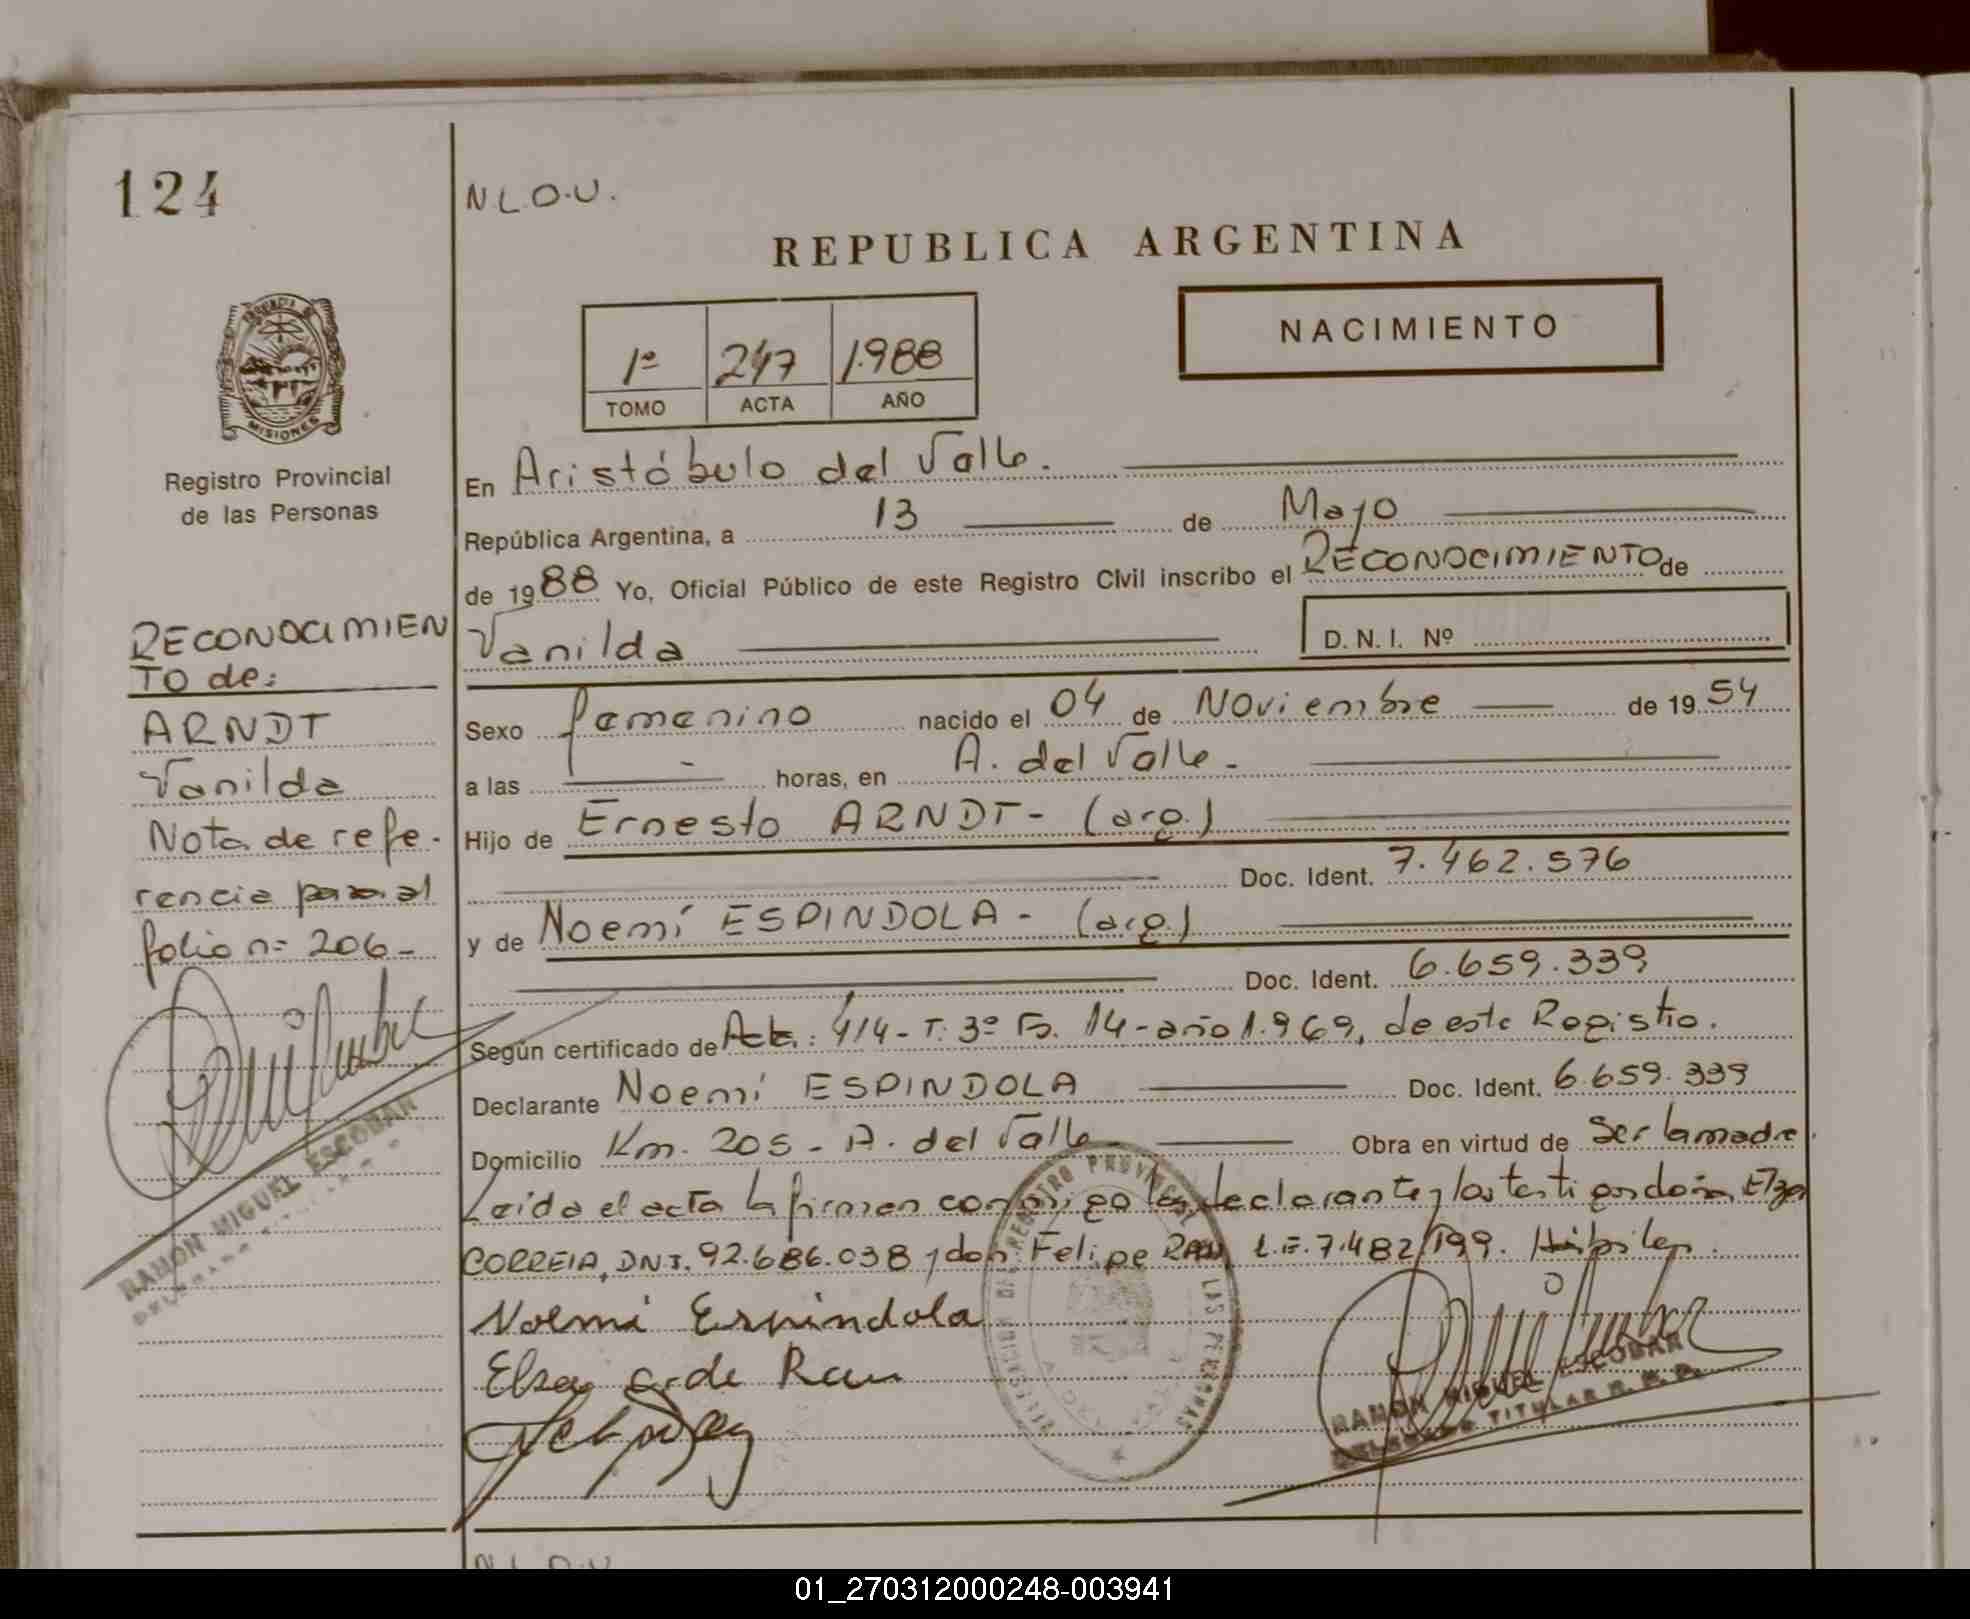 124
N.L.O.U.
REPUBLICA ARGENTINA
NACIMIENTO
1º 247 1.988
TOMO ACTA AÑO
PROVINCIA DE
MISIONES
Registro Provincial
de las Personas
En Aristóbulo del Valle.
República Argentina, a 13 de Mayo
de 1988 Yo, Oficial Público de este Registro Civil inscribo el RECONOCIMIENTO de
Vanilda
D.N.I. Nº
RECONOCIMIEN
TO de:
ARNDT
Vanilda
Nota de refe-
rencia para al
folio nº 206-
Sexo femenino nacido el 04 de Noviembre de 1954
a las - horas, en A. del Valle-
Hijo de Ernesto ARNDT- (arg.)
Doc. Ident. 7.462.576
y de Noemí ESPINDOLA- (arg.)
Doc. Ident. 6.659.339
Según certificado de Acta: 414-T. 3º Fº. 14-año 1.969, de este Registro.
Declarante Noemí ESPINDOLA Doc. Ident. 6.659.339
Domicilio Km. 205- A. del Valle Obra en virtud de Ser la madre.
Leída el acta la firman conmigo la declarante y los testigos doña Elza
CORREIA, DNI. 92.686.038 y don Felipe RAU L.E. 7.482.199.
Noemi Espindola
Elza c. de Rau
RAMON MIGUEL ESCOBAR
RAMON MIGUEL ESCOBAR
DELEGADO TITULAR R. P. P.
REGISTRO PROVINCIAL DE LAS PERSONAS
N.L.O.U.
01_270312000248-003941